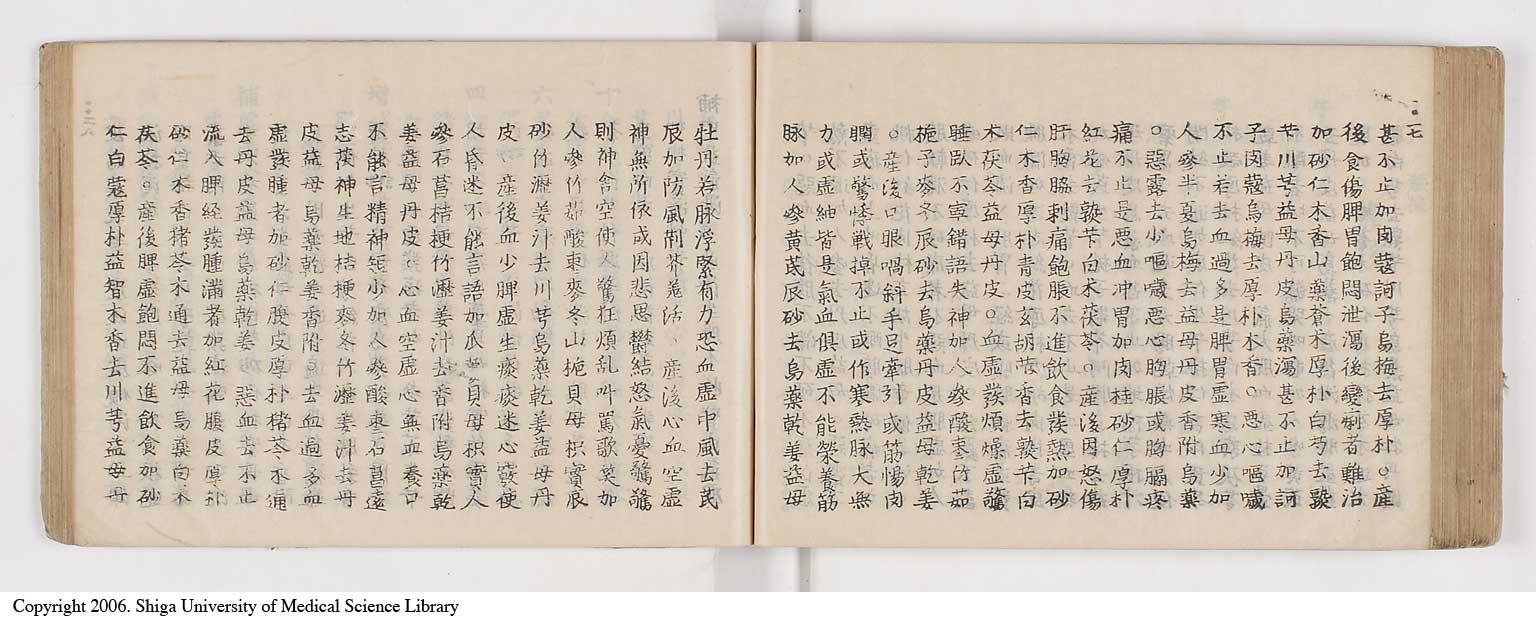 二七
甚不止加肉蔻訶子烏梅去厚朴○產
後食傷脾胃飽悶泄瀉後變痢者難治
加砂仁木香山藥蒼朮厚朴白芍去
芐川芎益母丹皮烏藥瀉甚不止加訶
子肉蔻烏梅去厚朴木香○惡心嘔噦
不止若去血過多是脾胃虛寒血少加
人參半夏烏梅去益母丹皮香附烏藥
○惡露去少嘔噦惡心胸脹或胸膈疼
痛不止是惡血冲胃加肉桂砂仁厚朴
紅花去芐白朮茯苓○產後因怒傷
肝胸脇刺痛飽脹不進飲食發熱加砂
仁木香厚朴青皮玄胡茴香去芐白
朮茯苓益母丹皮○血虛發煩燥虛驚
睡臥不寧錯語失神加人參酸棗竹茹
梔子麥冬辰砂去烏藥丹皮益母乾姜
○產後口眼喎斜手足牽引或筋惕肉
瞤或驚悸戰掉不止或作寒熱脉大無
力或虛細皆是氣血俱虛不能榮養筋
脉加人參黃芪辰砂去烏藥乾姜益母
牡丹若脉浮緊有力恐血虛中風去芪
辰加防風荊芥羌活、產後心血空虛
神無所依或因悲思鬱結怒氣憂驚驚
則神舍空使人驚狂煩乱叫罵歌笑加
人參竹茹酸棗麥冬山梔貝母枳實辰
砂竹瀝姜汁去川芎烏藥乾姜益母丹
皮、產後血少脾虛生痰痰迷心竅使
人昏迷不能言語加瓜 貝母枳實人
參石菖桔梗竹瀝姜汁去香附烏藥乾
姜益母丹皮、心血空虛心無血養口
不能言精神短少加人參酸棗石菖遠
志茯神生地桔梗麥冬竹瀝姜汁去丹
皮益母烏藥乾姜香附○去血過多血
虛發腫者加砂仁腹皮厚朴猪苓木通
去丹皮益母烏藥乾姜、惡血去不止
流入脾経發腫滿者加紅花腹皮厚朴
砂仁木香猪苓木通去益母烏藥白朮
茯苓○產後脾虛飽悶不進飲食加砂
仁白蔻厚朴益智木香去川芎益母丹
二八
Copyright 2006. Shiga University of Medical Science Library